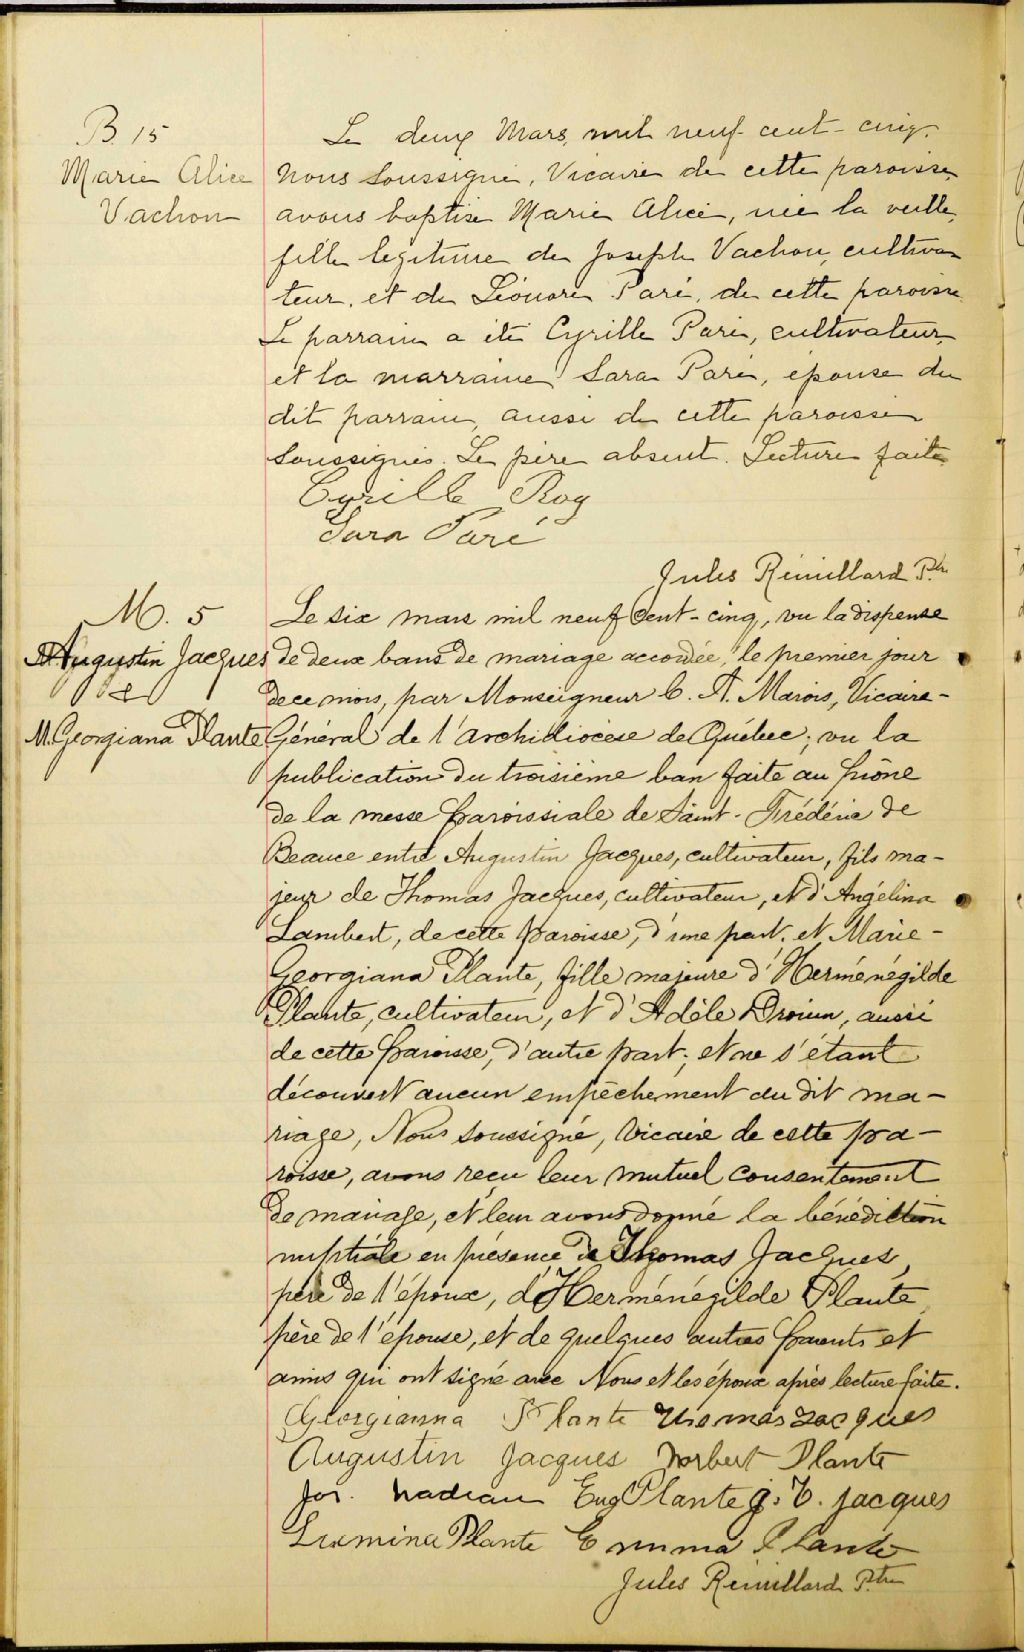 B. 15
Marie Alice
Vachon
Le deux Mars, mil neuf cent-cinq.
Nous soussigné, Vicaire de cette paroisse
avons baptisé Marie Alice, née la veille,
fille légitime de Joseph Vachon, cultiva-
teur, et de Léonore Paré, de cette paroisse
Le parrain a été Cyrille Paré, cultivateur
et la marraine Sara Paré, épouse du
dit parrain, aussi de cette paroisse
soussignés. Le père absent. Lecture faite.
Cyrille Roy
Sara Paré
Jules Rémillard Ptre
M. 5
Augustin Jacques
&
M. Georgiana Plante
Le six mars mil neuf cent-cinq, vu la dispense
de deux bans de mariage accordée, le premier jour
de ce mois, par Monseigneur C. A. Marois, Vicaire-
Général de l'Archidiocèse de Québec; vu la
publication du troisième ban faite au prône
de la messe paroissiale de Saint-Frédéric de
Beauce entre Augustin Jacques, cultivateur, fils ma-
jeur de Thomas Jacques, cultivateur, et d'Angélina
Lambert, de cette paroisse, d'une part, et Marie-
Georgiana Plante, fille majeure d'Herménégilde
Plante, cultivateur, et d'Adèle Drouin, aussi
de cette paroisse, d'autre part; et ne s'étant
découvert aucun empêchement au dit ma-
riage, Nous soussigné, Vicaire de cette pa-
roisse, avons reçu leur mutuel consentement
de mariage, et leur avons donné la bénédiction
nuptiale en présence de Thomas Jacques,
père de l'époux, d'Herménégilde Plante,
père de l'épouse, et de quelques autres parents et
amis qui ont signé avec Nous et les époux après lecture faite.
Georgianna Plante Thomas Jacques
Augustin Jacques Norbert Plante
Jos. Nadeau Eug Plante J. T. Jacques
Lumina Plante Emma Plante
Jules Rémillard Ptre